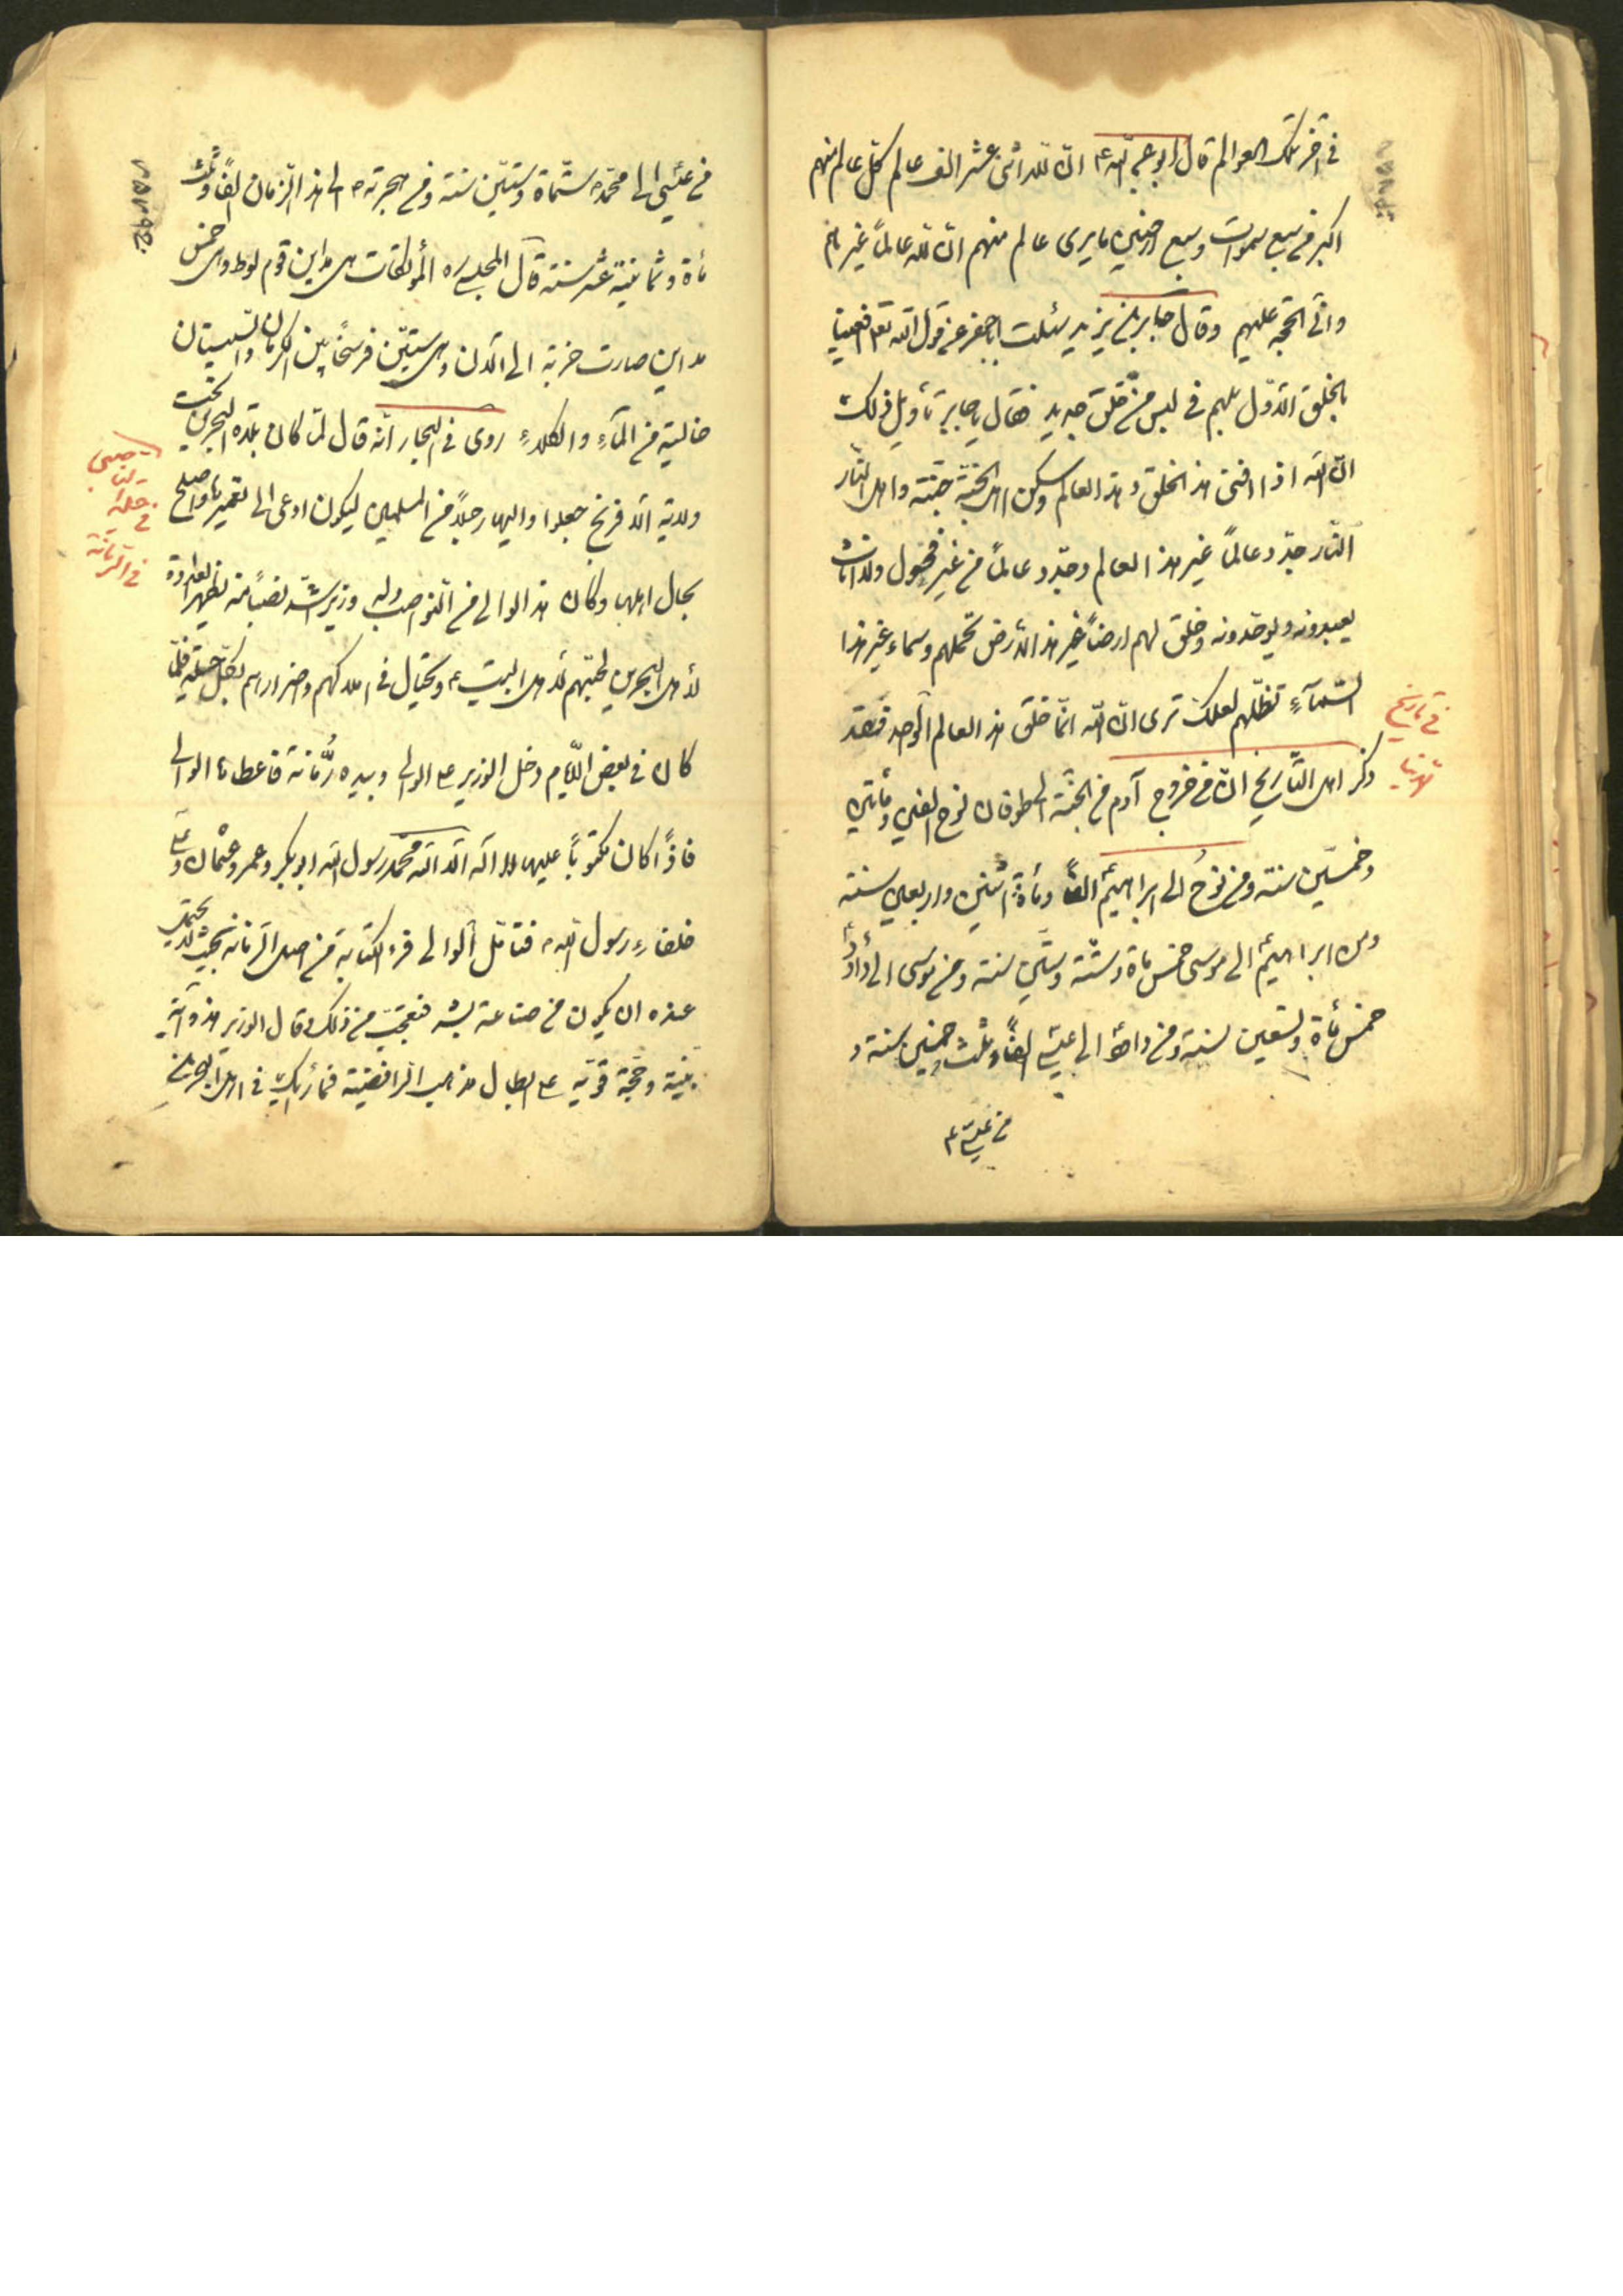 في آخر تلك العوالم قال ابو عبد الله ع ان لله اثنى عشر الف عالم كل عالم منهم
اكبر من سبع سموات وسبع ارضين ما يرى عالم منهم ان لله عالماً غيرهم
واني الحجة عليهم وقال جابر بن يزيد سئلت ابا جعفر عن قول الله تعه افعيينا
بالخلق الاول بل هم في لبس من خلق جديد فقال يا جابر تأويل ذلك
ان الله اذا افنى هذا الخلق وهذا العالم وسكن اهل الجنة جنته واهل النار
النار جدد عالماً غير هذا العالم وجدد عالماً من غير فحول ولا اناث
يعبدونه ويوحدونه وخلق لهم ارضاً غير هذا الارض تحملهم وسماء غير هذا
السماء تظلهم لعلك ترى ان الله انما خلق هذا العالم الواحد
في تاريخ
الدنيا
ذكر اهل التاريخ ان من خروج آدم من الجنة الى طوفان نوح الفين ومأتين
وخمسين سنة ومن نوح الى ابراهيم الفاً ومأة اثنين واربعين سنة
ومن ابراهيم الى موسى خمس مأة وستة وستين سنة ومن موسى الى داود
خمس مأة وتسعين سنة ومن داود الى عيسى الفاً وثلث وخمسين سنة و
من عيسى ع
من عيسى الى محمد ستمأة وستين سنة ومن هجرته الى هذا الزمان الفاً وثلث
مأة وثمانية عشر سنة قال المجلسي ره المؤتفكات هي مداين قوم لوط وهي خمس
مداين صارت خربة الى الان وهي ستين فرسخاً بين الكرمان والسيستان
خالية من الماء والكلاء روى في البحار انه قال لما كان بلدة البحرين تحت
ولاية الافرنج جعلوا واليها رجلاً من المسلمين ليكون ادعى الى تعميرها واصلح
في الرمانة
بحال اهلها وكان هذا الوالي من النواصب وله وزير اشد نصباً منه يظهر العداوة
لاهل البحرين لحبهم لاهل البيت ع ويحتال في اهلاكهم واضرارهم بكل حيلة فلما
كان في بعض الايام دخل الوزير على الوالي وبيده رمانة فاعطاها الوالي
فاذاً كان مكتوباً عليها لا اله الا الله محمد رسول الله ابو بكر وعمر وعثمان وعلي
خلفاء رسول الله فتأمل الوالي فرء الكتابة من اصل الرمانة بحيث لا يحتمل
عنده ان يكون من صناعة بشر فتعجب من ذلك وقال الوزير هذه آية
بينة وحجة قوية على ابطال مذهب الرافضية فما رأيك في اهل البحرين